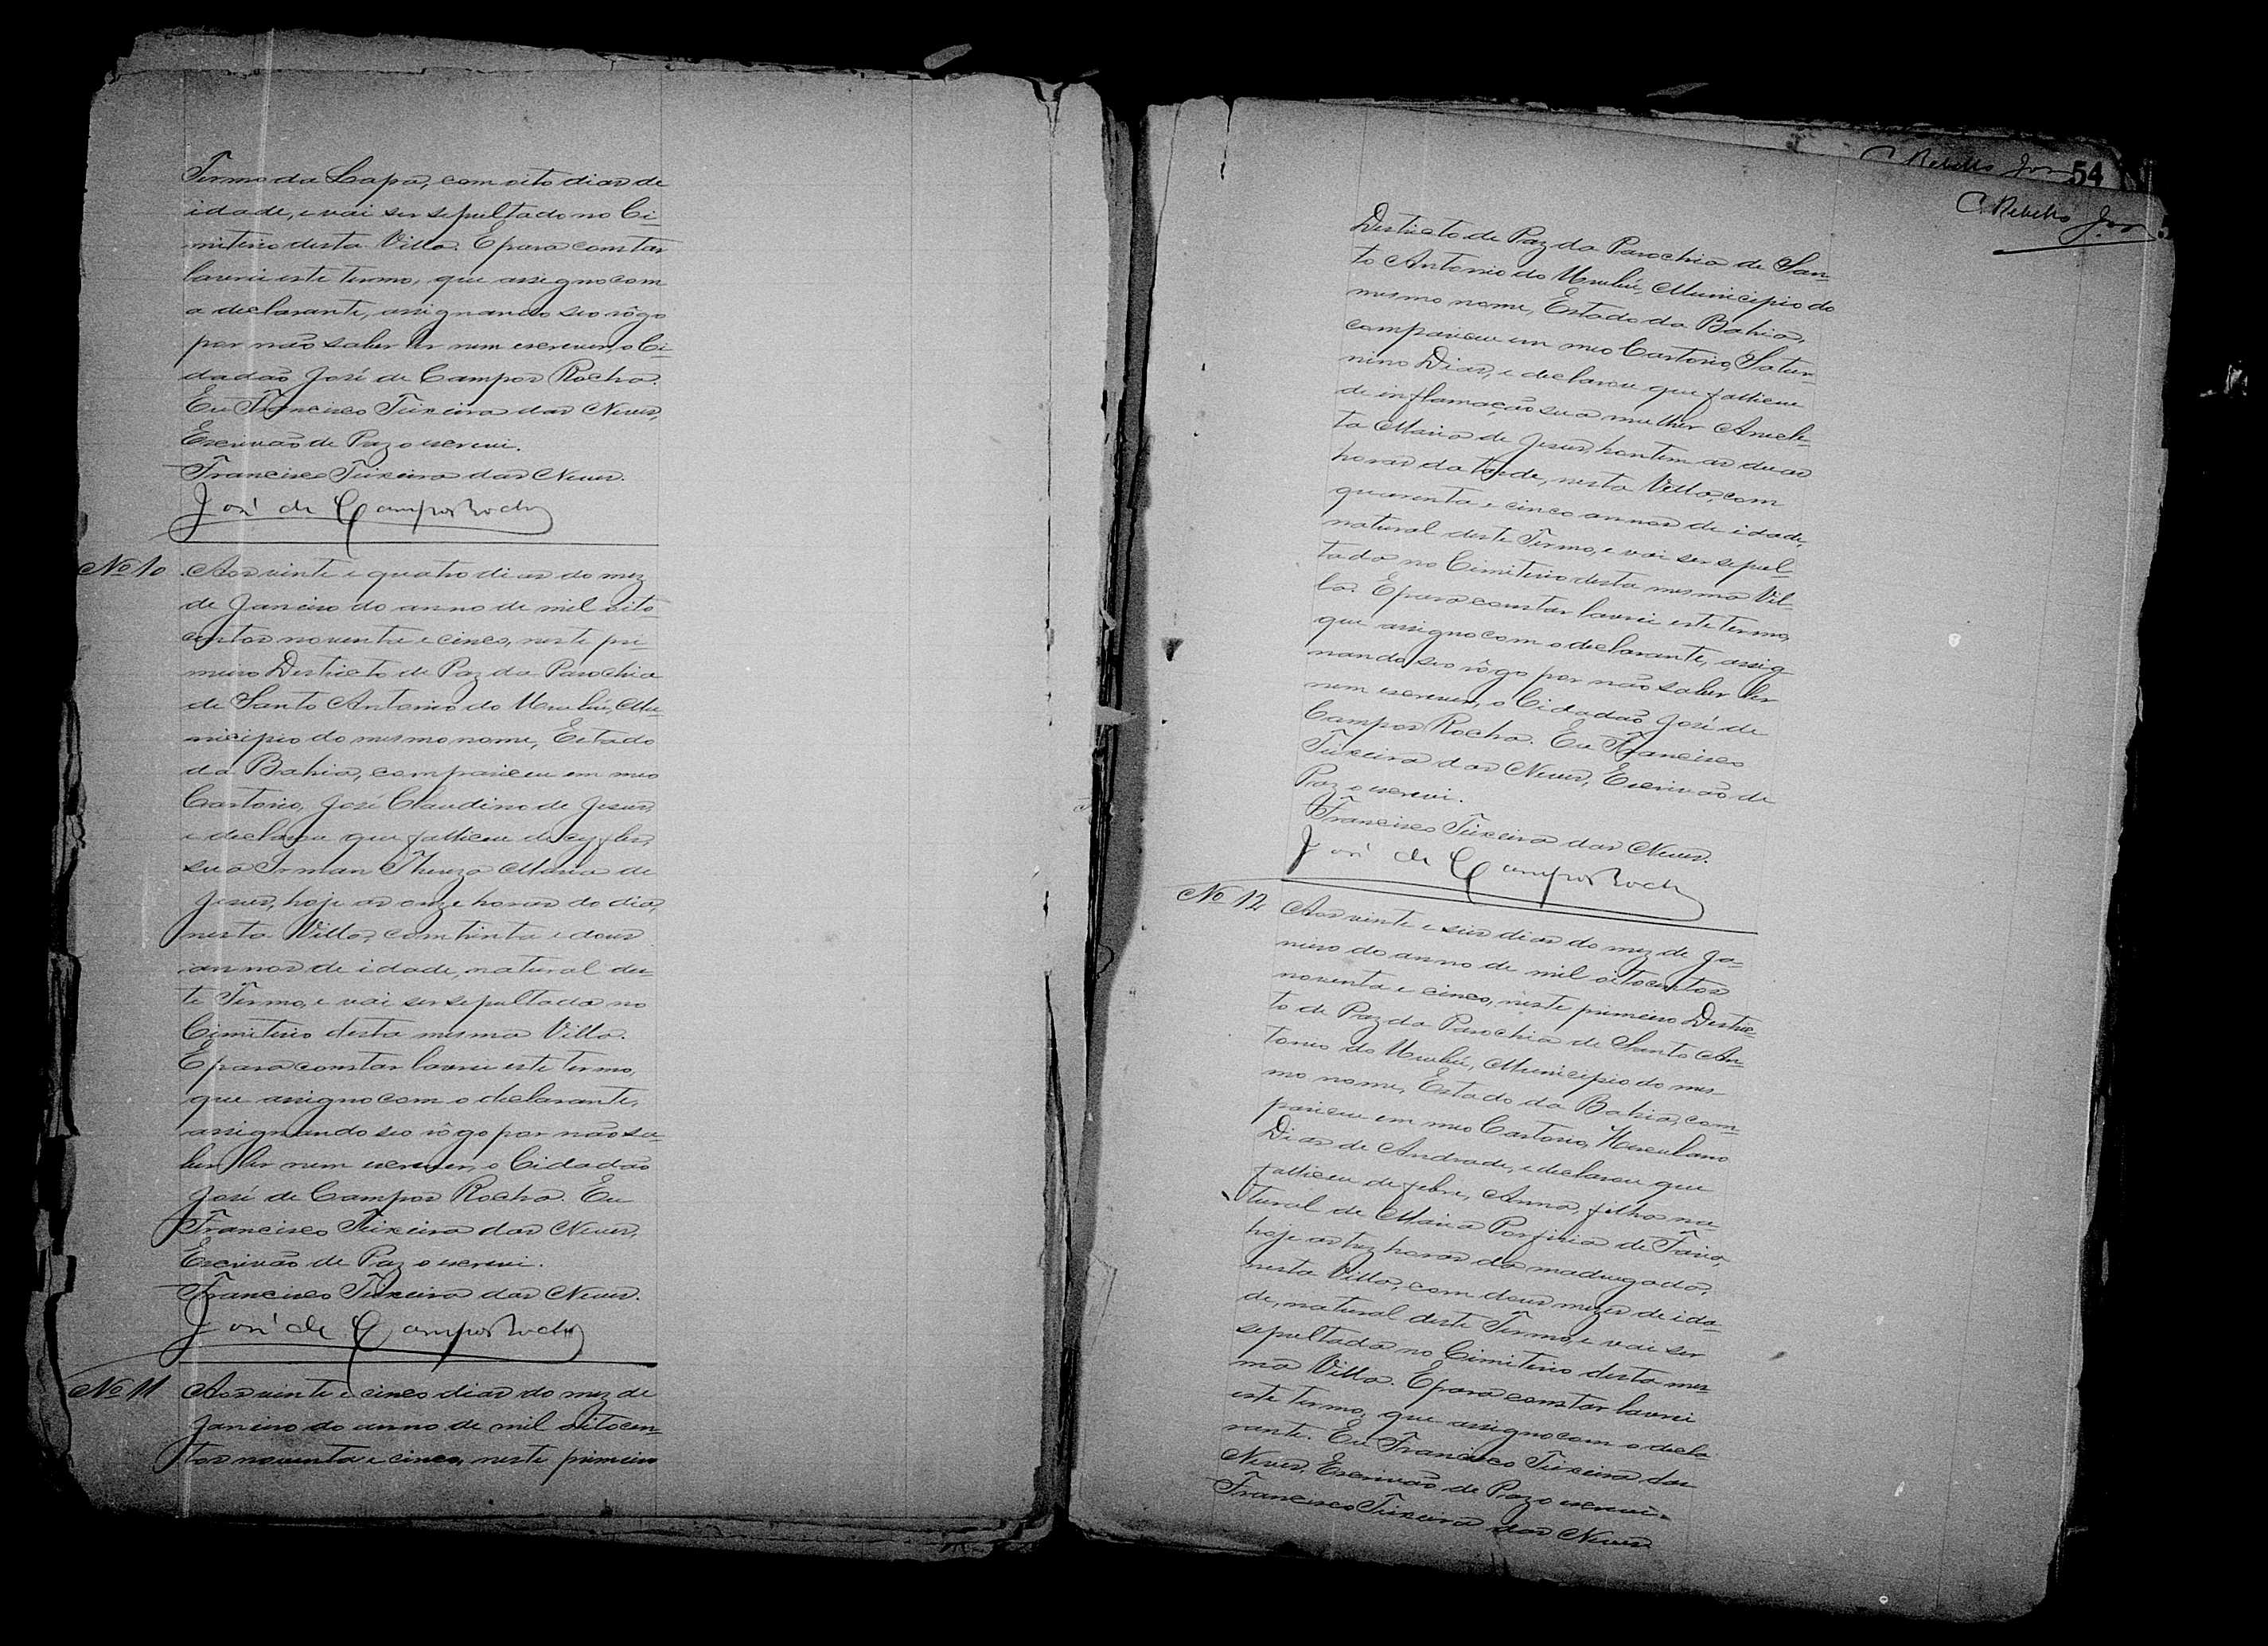 Termo da Lapa, com oito dias de
idade, e vai ser sepultado no Ci-
miterio desta Villa. E para constar
lavrei este termo, que assigno com
a declarante, assignando seo rôgo
por não saber ler nem escrever, o Ci-
dadão José de Campos Rocha.
Eu Francisco Teixeira das Neves,
Escrivão de Paz o escrevi.
Francisco Teixeira das Neves.
José de Campos Rocha
No 10 Aos vinte e quatro dias do mez
de Janeiro do anno de mil oito
centos noventa e cinco, neste pri-
meiro Destricto de Paz da Parochia
de Santo Antonio do Urubú, Mu-
nicipio do mesmo nome, Estado
da Bahia, compareceu em meo
Cartorio, José Claudino de Jesus,
e declarou que falleceu de
sua Irman Thereza Maria de
Jesus, hoje as onze horas do dia,
nesta Villa, com trinta e dous
annos de idade, natural des-
te Termo, e vai ser sepultada no
Cimiterio desta mesma Villa.
E para constar lavrei este termo,
que assigno com o declarante,
assignando seo rôgo por não sa-
ber ler nem escrever, o Cidadão
José de Campos Rocha. Eu
Francisco Teixeira das Neves,
Escrivão de Paz o escrevi.
Francisco Teixeira das Neves.
José de Campos Rocha
No 11 Aos vinte e cinco dias do mez de
Janeiro do anno de mil oitocen-
tos noventa e cinco, neste primeiro
C. Rebello Jor 54
C. Rebello Jor
Destricto de Paz da Parochia de San-
to Antonio do Urubú, Municipio do
mesmo nome, Estado da Bahia,
compareceu em meo Cartorio, Satur-
nino Dias, e declarou que falleceu
de inflamação sua mulher Anacle-
ta Maria de Jesus, hontem as duas
horas da tarde, nesta Villa, com
quarenta e cinco annos de idade,
natural deste Termo, e vai ser sepul-
tada no Cimiterio desta mesma Vil-
la. E para constar lavrei este termo,
que assigno com o declarante, assig
nando seo rôgo por não saber ler
nem escrever, o Cidadão José de
Campos Rocha. Eu Francisco
Teixeira das Neves, Escrivão de
Paz o escrevi.
Francisco Teixeira das Neves.
José de Campos Rocha
No 12 Aos vinte e seis dias do mez de Ja-
neiro do anno de mil oitocentos
noventa e cinco, neste primeiro Destric-
to de Paz da Parochia de Santo An-
tonio do Urubú, Municipio do mes-
mo nome, Estado da Bahia, com-
pareceu em meo Cartorio, Herculano
Dias de Andrade, e declarou que
falleceu de febre, Anna, filha na-
tural de Maria Porfiria de Faria,
hoje as trez horas da madrugada,
nesta Villa, com dous mezes de ida-
de, natural deste Termo, e vai ser
sepultada no Cimiterio desta mes-
ma Villa. E para constar lavrei
este termo, que assigno com o decla
rante. Eu Francisco Teixeira das
Neves, Escrivão de Paz o escrevi.
Francisco Teixeira das Neves